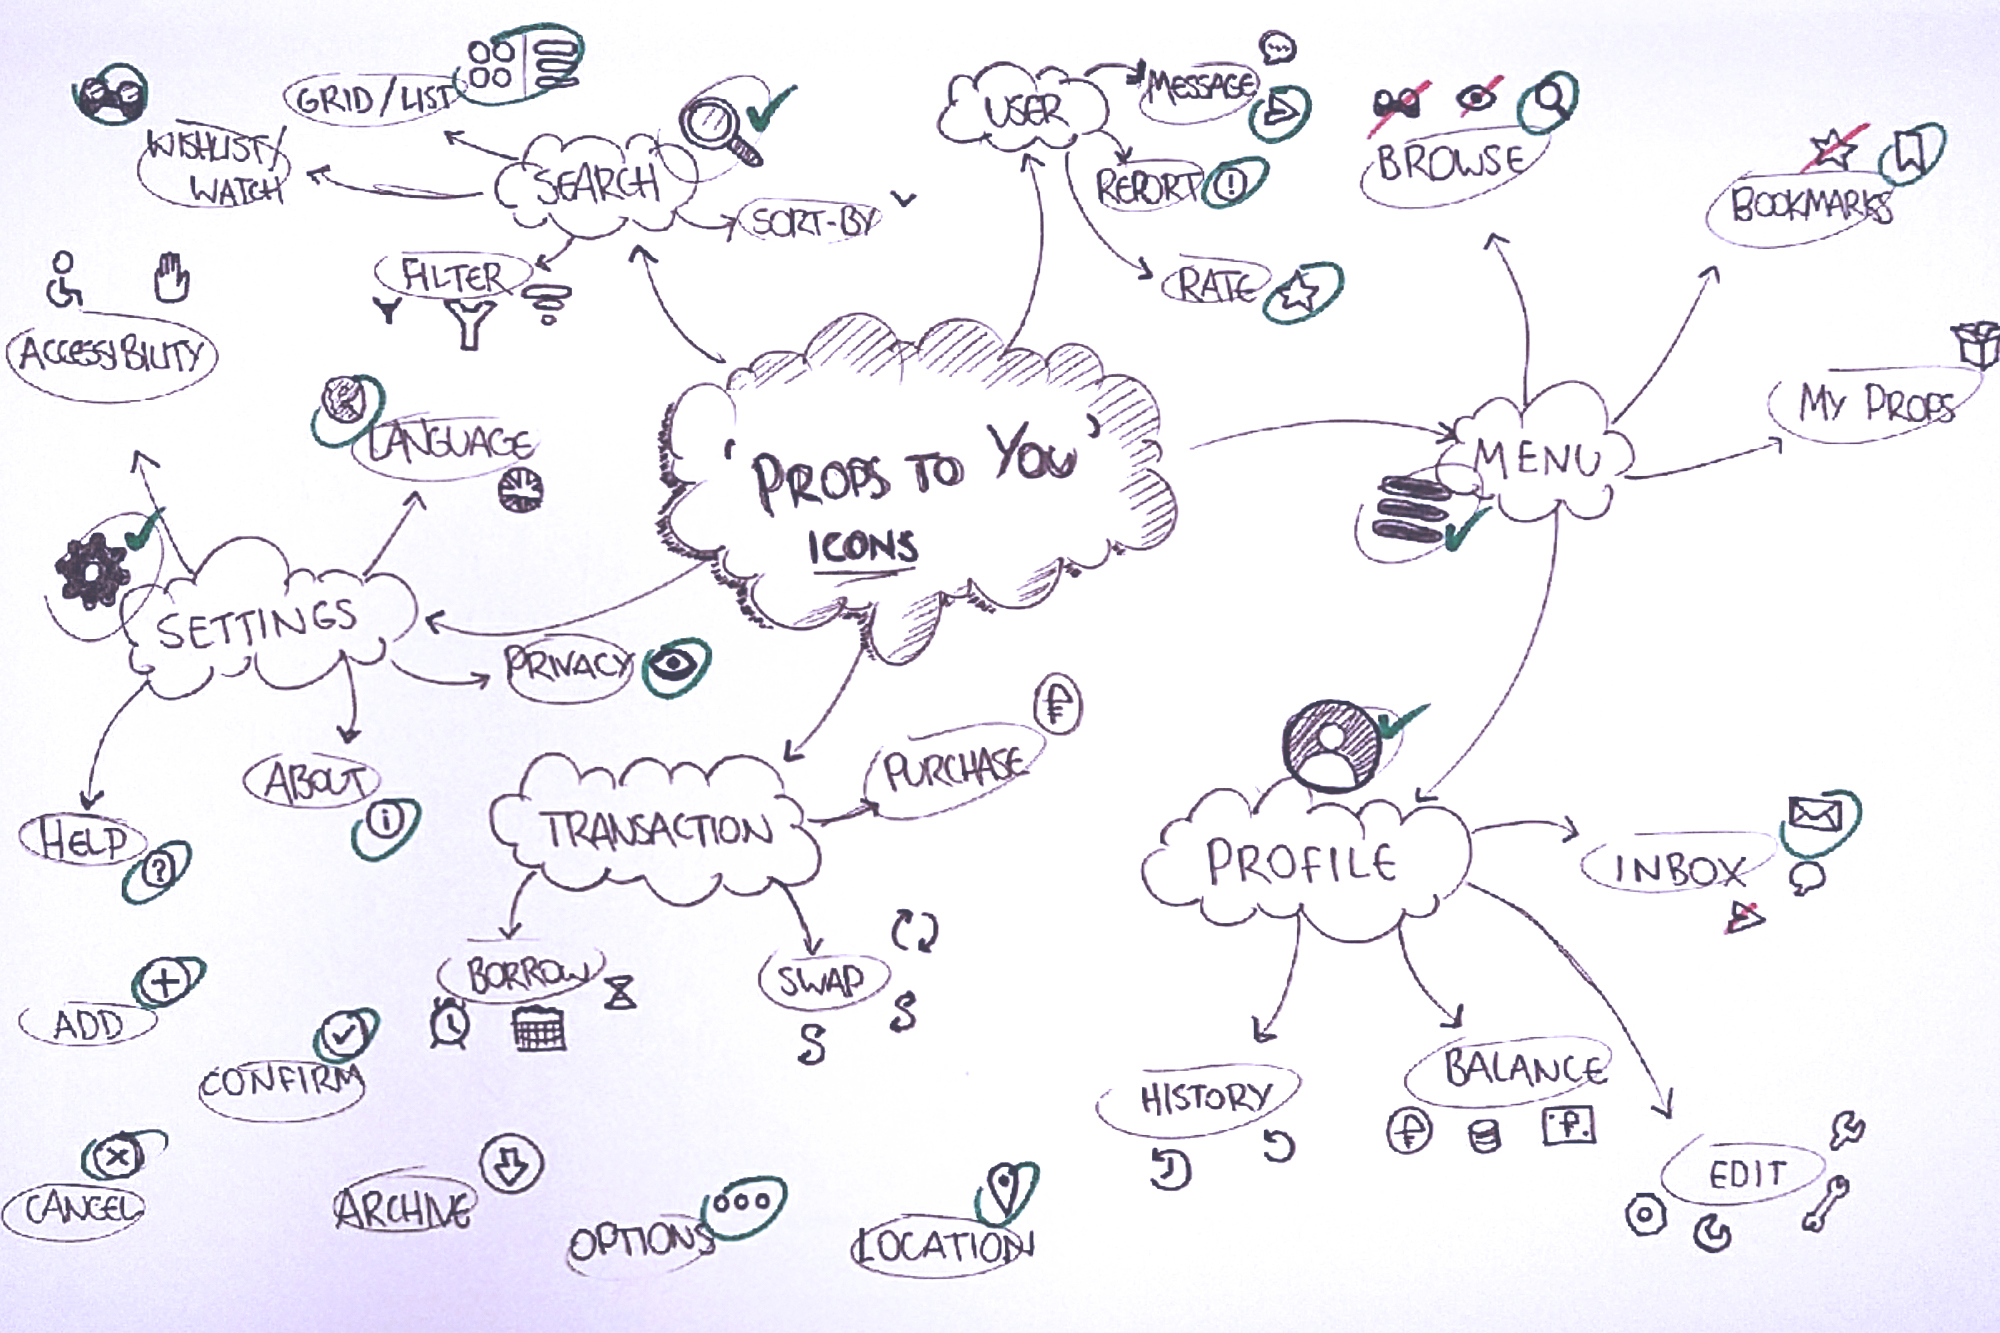 GRID/LIST
WISHLIST/
WATCH
SEARCH
SORT-BY
FILTER
USER
MESSAGE
REPORT
RATE
BROWSE
BOOKMARKS
MY PROPS
MENU
ACCESSIBILITY
LANGUAGE
'PROPS TO YOU'
ICONS
SETTINGS
PRIVACY
ABOUT
i
HELP
?
TRANSACTION
PURCHASE
BORROW
SWAP
PROFILE
INBOX
HISTORY
BALANCE
EDIT
ADD
CONFIRM
CANCEL
ARCHIVE
OPTIONS
LOCATION